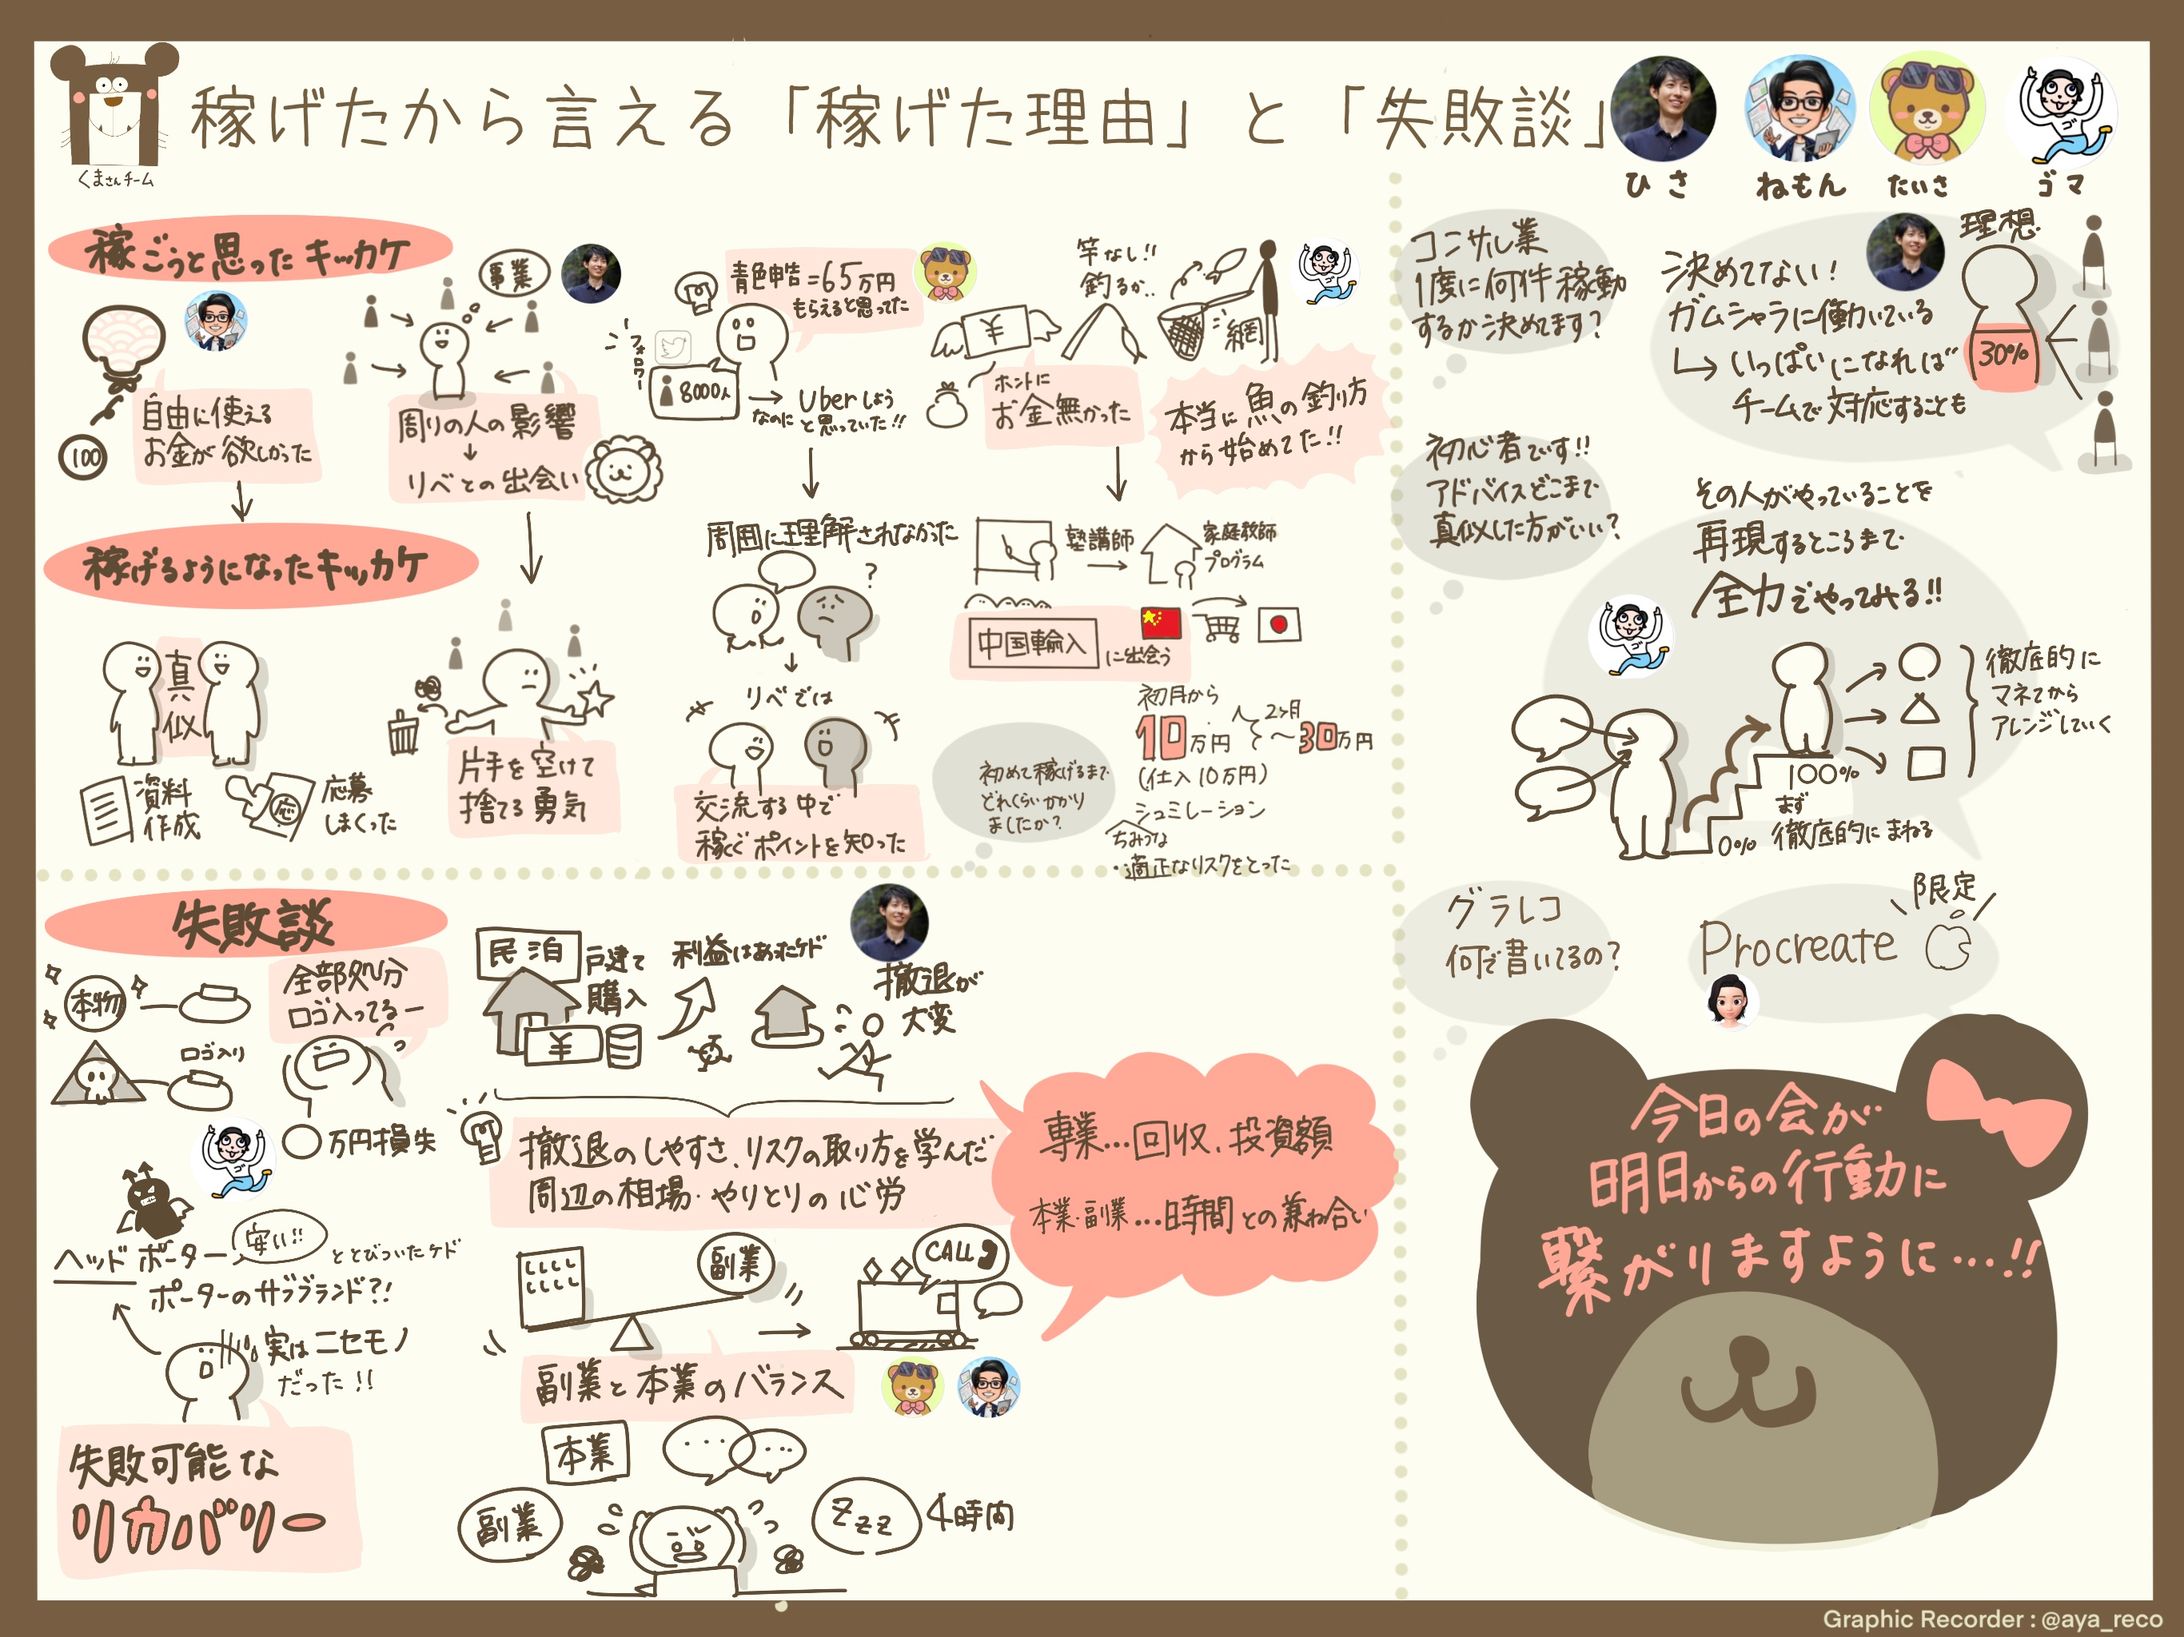 稼げたから言える「稼げた理由」と「失敗談」
くまさんチーム
ひさ
ねもん
たいさ
ゴマ
稼ごうと思ったキッカケ
100
自由に使える
お金が欲しかった
事業
周りの人の影響
↓
リベとの出会い
青色申告=65万円
もらえると思ってた
フォロワー
8000人
→ Uberしよう
なのに と思っていた!!
竿なし!!
釣るか..
¥
網
ホントに
お金無かった
本当に魚の釣り方
から始めてた!!
稼げるようになったキッカケ
真似
資料
作成
応
応募
しまくった
片手を空けて
捨てる勇気
周囲に理解されなかった
?
リベでは
交流する中で
稼ぐポイントを知った
塾講師
→
家庭教師
プログラム
中国輸入
に出会う
初めて稼げるまで
どれくらいかかり
ましたか?
初月から
10万円
2ヶ月
〜30万円
(仕入10万円)
シュミレーション
ちみつな
・適正なリスクをとった
失敗談
本物
ロゴ入り
全部処分
ロゴ入ってるー
〇万円損失
ヘッドポーター
安い!!
ととびついたケド
ポーターのサブブランド?!
実はニセモノ
だった!!
失敗可能な
リカバリー
民泊
戸建て
購入
¥
利益はあったケド
撤退が
大変
撤退のしやすさ、リスクの取り方を学んだ
周辺の相場・やりとりの心労
専業…回収、投資額
本業・副業…時間との兼ね合い
副業
CALL
副業と本業のバランス
本業
副業
Zzz
4時間
コンサル業
1度に何件稼動
するか決めてます?
決めてない!
ガムシャラに働いている
↳いっぱいになれば
チームで対応することも
理想
30%
初心者です!!
アドバイスどこまで
真似した方がいい?
その人がやっていることを
再現するところまで
全力でやってみる!!
0%
100%
まず
徹底的にまねる
徹底的に
マネてから
アレンジしていく
グラレコ
何で書いてるの?
限定
Procreate
今日の会が
明日からの行動に
繋がりますように…!!
Graphic Recorder : @aya_reco